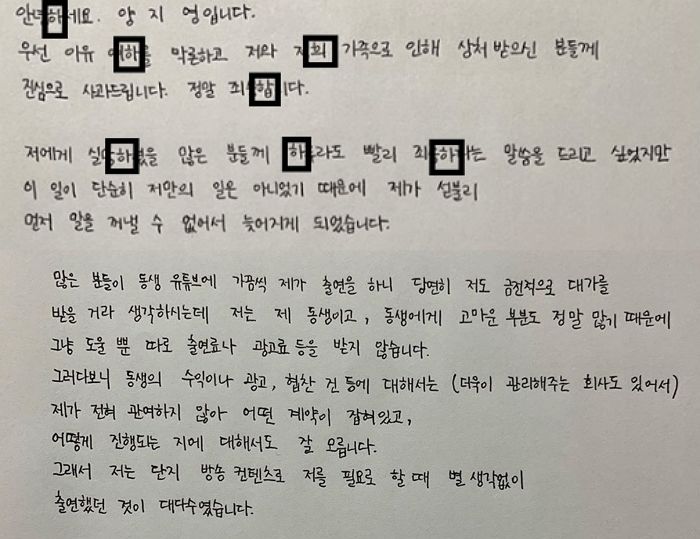 안녕하세요. 양 지 영입니다.
우선 이유 여하를 막론하고 저와 저희 가족으로 인해 상처 받으신 분들께
진심으로 사과드립니다. 정말 죄송합니다.
저에게 실망하셨을 많은 분들께 하루라도 빨리 죄송하다는 말씀을 드리고 싶었지만
이 일이 단순히 저만의 일은 아니었기 때문에 제가 섣불리
먼저 말을 꺼낼 수 없어서 늦어지게 되었습니다.
많은 분들이 동생 유튜브에 가끔씩 제가 출연을 하니 당연히 저도 금전적으로 대가를
받을 거라 생각하시는데 저는 제 동생이고, 동생에게 고마운 부분도 정말 많기 때문에
그냥 도울 뿐 따로 출연료나 광고료 등을 받지 않습니다.
그러다보니 동생의 수익이나 광고, 협찬 건 등에 대해서는 (더욱이 관리해주는 회사도 있어서)
제가 전혀 관여하지 않아 어떤 계약이 잡혀있고,
어떻게 진행되는 지에 대해서도 잘 모릅니다.
그래서 저는 단지 방송 컨텐츠로 저를 필요로 할 때 별 생각없이
출연했던 것이 대다수였습니다.